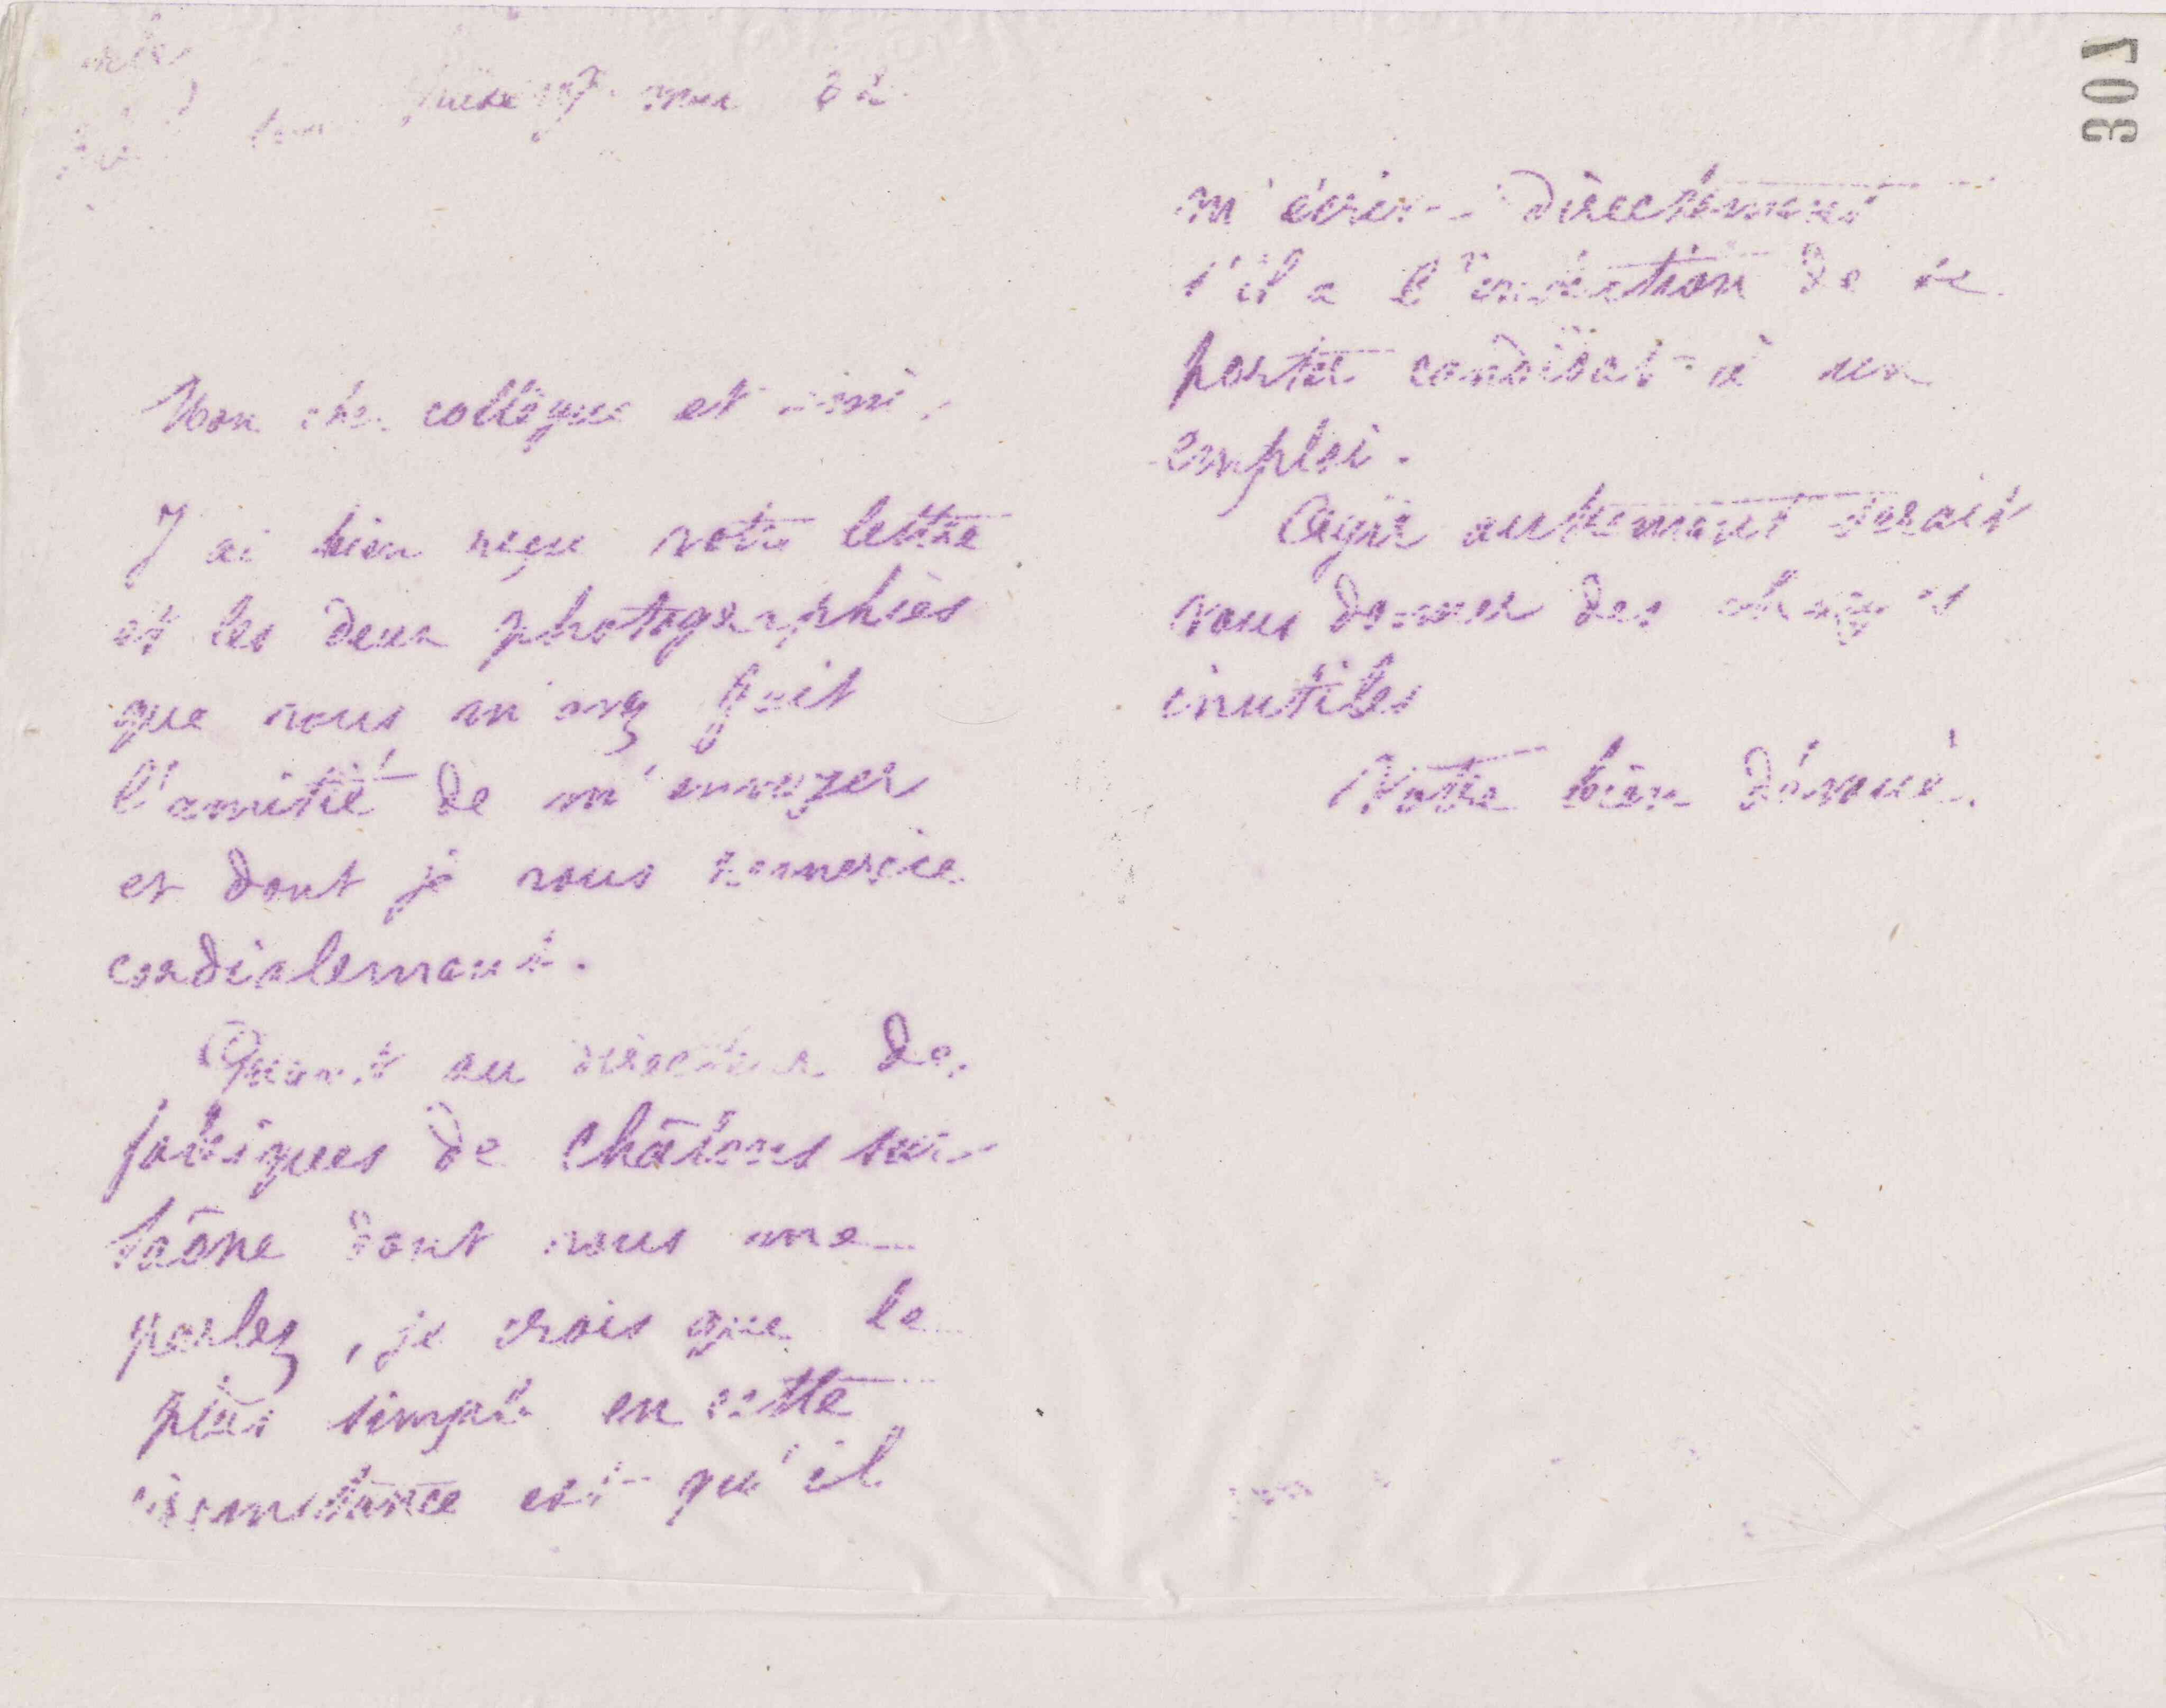 307
Mon cher collègue et ami,
J'ai bien reçu votre lettre
et les deux photographies
que vous m'avez fait
l'amitié de m'envoyer
et dont je vous remercie
cordialement.
Quant au directeur des
fabriques de Châlons sur
Saône dont vous me
parlez, je crois que le
plus simple en cette
circonstance est qu'il
m'écrive directement
s'il a l'intention de se
porter candidat à un
emploi.
Agir autrement serait
vous donner des charges
inutiles
Votre bien dévoué.